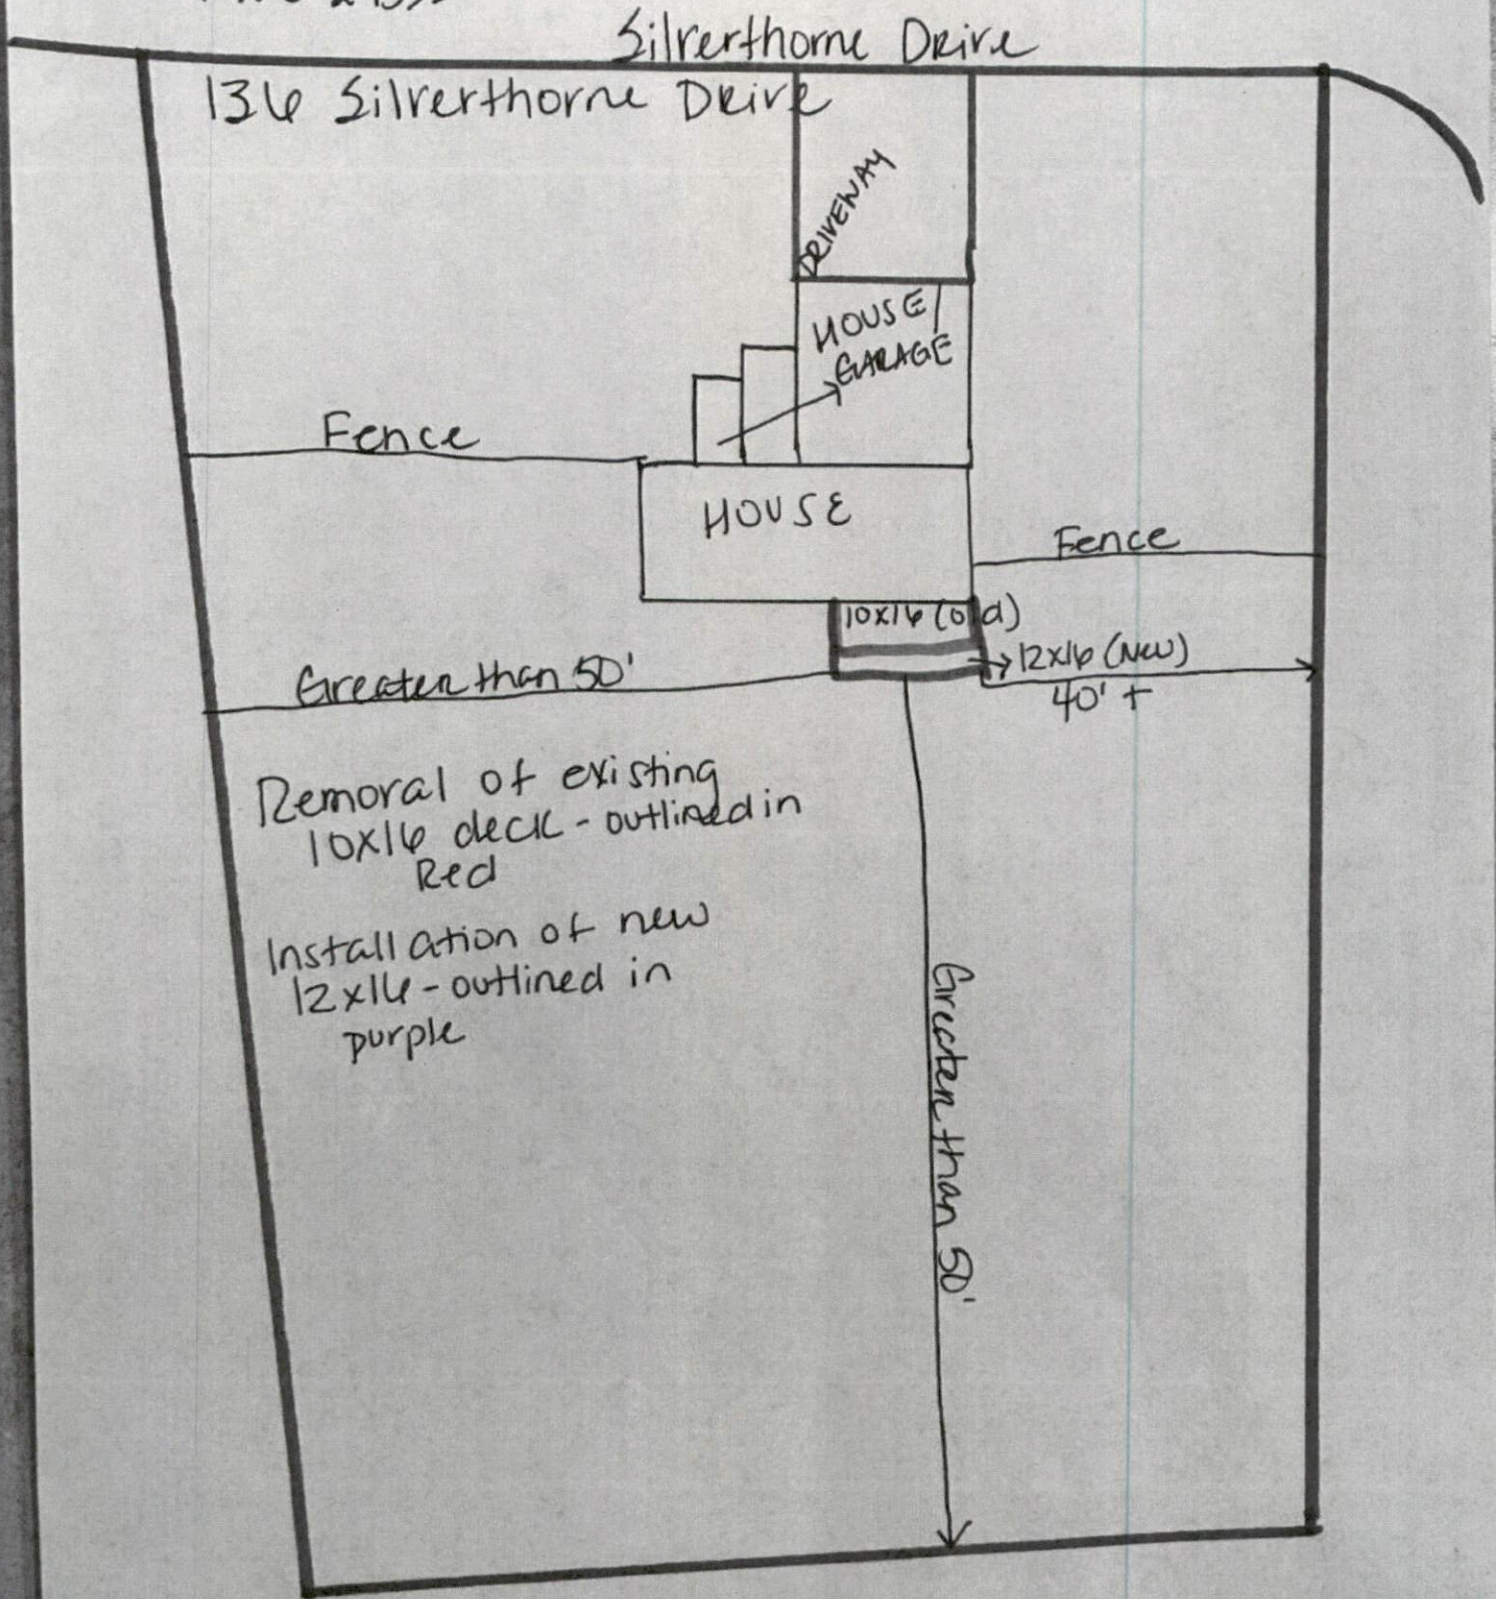 Silverthorne Drive
136 Silverthorne Drive
DRIVEWAY
HOUSE/
GARAGE
Fence
HOUSE
Fence
10x16 (old)
12x16 (New)
Greater than 50'
40' +
Removal of existing
10x16 deck - outlined in
Red
Installation of new
12x16 - outlined in
purple
Greater than 50'